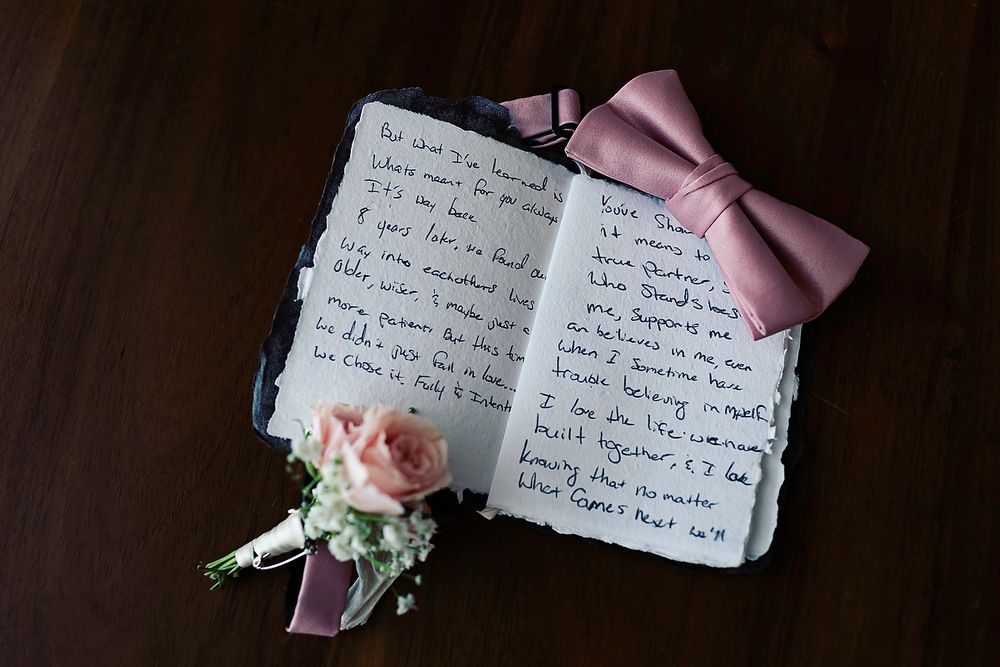 But what I've learned is
Whats meant for you always
It's way back
8 years later, we found our
way into eachothers lives
Older, wiser, & maybe just a
more patient. But this tim
we didn't just fall in love...
We chose it. Fully & Intent
You've Show
it means to
true partner,
Who Stands bes
me, Supports me
an believes in me, even
when I Sometime have
trouble believing in myself
I love the life we have
built together, & I love
knowing that no matter
What Comes next we'll